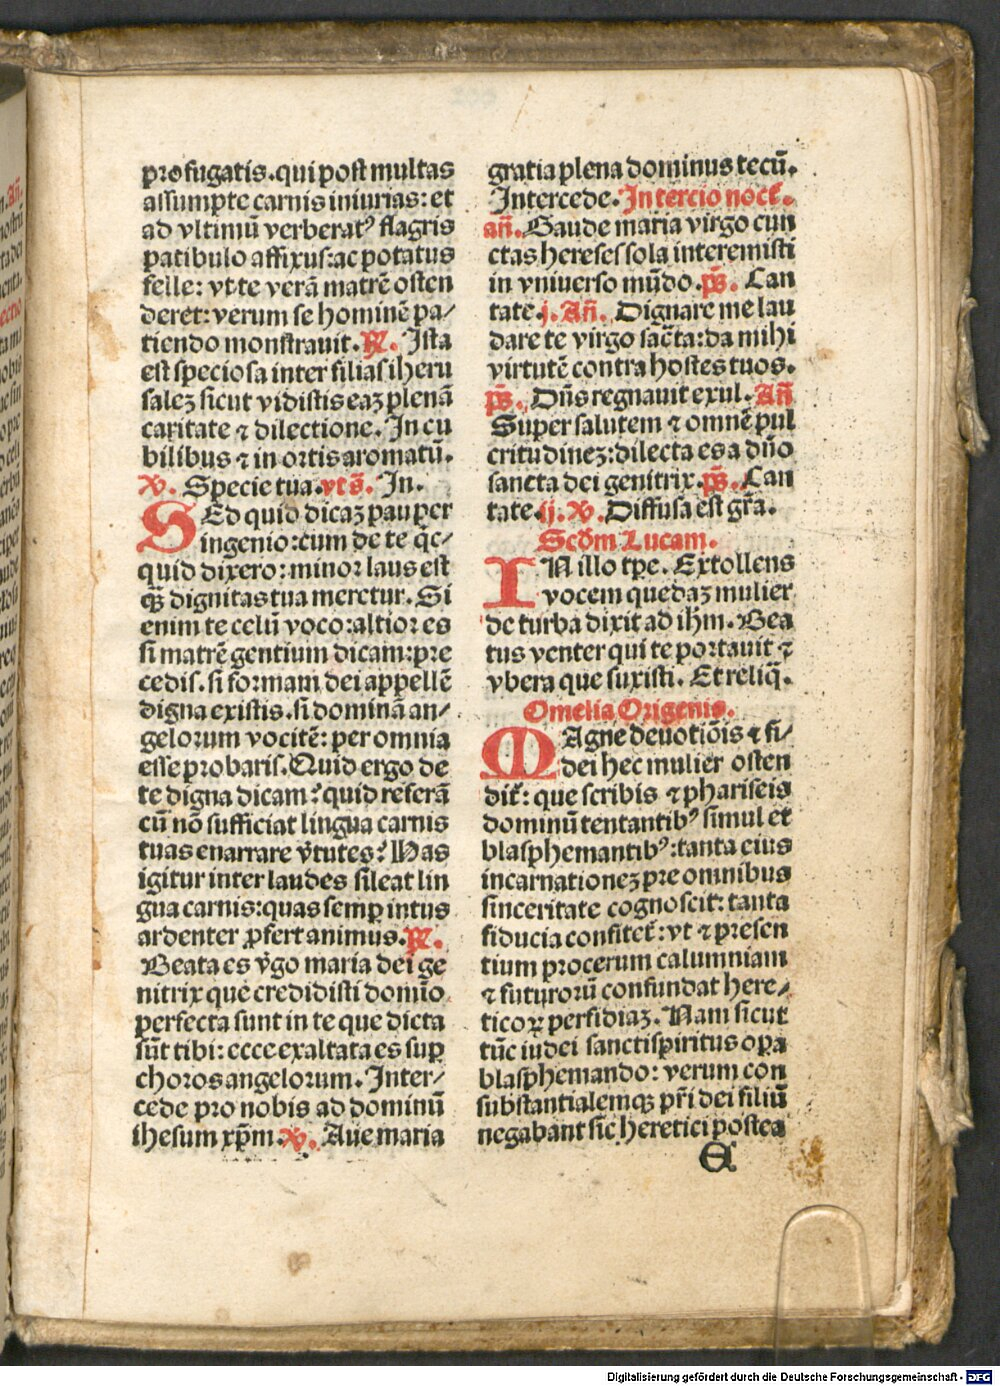 profugatis.qui post multas
assumpte carnis iniurias: et
ad vltimū verberatꝰ flagris
patibulo affixus:ac potatus
felle: vt te verā matrē osten
deret: verum se hominē pa⸗
tiendo monstrauit. ℟. Ista
est speciosa inter filias iheru
saleꝫ sicut vidistis eaꝫ plenā
caritate ⁊ dilectione. In cu
bilibus ⁊ in ortis aromatū.
℣. Specie tua. vt s̄. In.
SEd quid dicaꝫ pauper
ingenio: cum de te qͥc⸗
quid dixero: minor laus est
qȝ dignitas tua meretur. Si
enim te celū voco: altior es
si matrē gentium dicam: pre
cedis. si formam dei appellē
digna existis. si dominā an⸗
gelorum vocitē: per omnia
esse probaris. Quid ergo de
te digna dicam? quid referā
cū nō sufficiat lingua carnis
tuas enarrare v̓tutes? Has
igitur inter laudes sileat lin
gua carnis: quas semꝑ intus
ardenter ꝓfert animus. ℟.
Beata es v̓go maria dei ge
nitrix que credidisti domīo
perfecta sunt in te que dicta
sūt tibi: ecce exaltata es suꝑ
choros angelorum. Inter⸗
cede pro nobis ad dominū
ihesum xp̄m. ℣. Aue maria
gratia plena dominus tecū.
Intercede. In tercio noct̄.
an̄. Gaude maria virgo cun
ctas hereses sola interemisti
in vniuerso mūdo. ps̄. Can
tate. j. An̄. Dignare me lau
dare te virgo sac̄ta: da mihi
virtutē contra hostes tuos.
ps̄. Dn̄s regnauit exul. An̄
Super salutem ⁊ omnē pul
critudineꝫ: dilecta es a dn̄o
sancta dei genitrix. ps̄. Can
tate. ij. ℣. Diffusa est gr̄a.
Scd̄m Lucam.
IN illo tp̄e. Extollens
vocem quedaꝫ mulier
de turba dixit ad ih̄m. Bea
tus venter qui te portauit ⁊
vbera que suxisti. Et reliq̄.
Omelia Origenis.
MAgne deuotiōis ⁊ fi⸗
dei hec mulier osten
dit̄: que scribis ⁊ phariseis
dominū tentantibꝰ simul et
blasphemantibꝰ: tanta eius
incarnationeꝫ pre omnibus
sinceritate cognoscit: tanta
fiducia confitet̄: vt ⁊ presen
tium procerum calumniam
⁊ futurorū confundat here⸗
ticoꝝ perfidiaꝫ. Nam sicut
tūc iudei sanctispiritus oꝑa
blasphemando: verum con
substantialemqȝ pr̄i dei filiū
negabant sic heretici postea
E
Digitalisierung gefördert durch die Deutsche Forschungsgemeinschaft - DFG